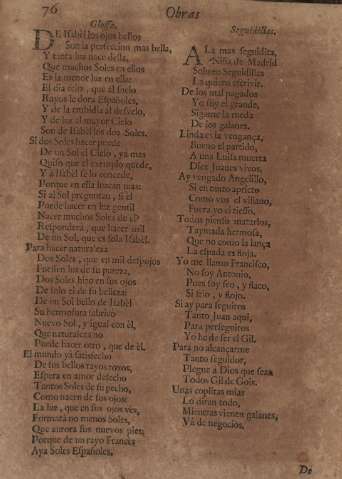 76
Obras
Glossa.
DE Isabel los ojos bellos
Son la perfeccion mas bella,
Y tanta luz nace della,
Que muchos Soles en ellos
Es la menor luz en ella:
El dia cree, que al suelo
Rayos le dora Españoles,
Y de la embidia al desvelo,
Y de luz al mejor Cielo
Son de Isabel los dos Soles.
Si dos Soles hacer puede
De un Sol el Cielo, ya mas
Quiso que el exemplo quede,
Y à Isabel se lo concede,
Porque en ella luzcan mas:
Si al Sol preguntan, si el
Puede hacer en luz gentil
Nacer muchos Soles de èl?
Responderà, que hacer mil
De un Sol, que es sola Isabèl.
Para hacer naturaleza
Dos Soles, que en mil despojos
Fuessen luz de su pureza,
Dos Soles hizo en sus ojos
De solo el de su belleza:
De un Sol bello de Isabèl
Su hermosura fabricò
Nuevo Sol, y igual con èl,
Que naturaleza no
Puede hacer otro, que de èl.
El mundo yà satisfecho
De sus bellos rayos roxos,
Espera en amor deshecho
Tantos Soles de su pecho,
Como nacen de sus ojos:
La luz, que en sus ojos vès,
Formarà no menos Soles,
Que aurora sus nuevos pies,
Porque de un rayo Francès
Aya Soles Españoles.
Seguidillas.
A La mas seguidita,
Niña de Madrid
Solo en Seguidillas
La quiero escrivir.
De los mal pagados
Yo soy el grande,
Sigame la rueda
De los galanes.
Linda es la vengança,
Bueno el partido,
A una Luisa muerta
Diez Juanes vivos.
Ay vengado Angelillo,
Si en tanto aprieto
Como vos el villano,
Fuera yo el tiesso.
Todos piensa matarlos,
Taymada hermosa,
Que no como la lança
La espada es floja.
Yo me llamo Francisco,
No soy Antonio,
Pues soy feo, y flaco,
Si frio, y flojo.
Si ay para seguiros
Tanto Juan aqui,
Para perseguiros
Yo he de ser el Gil.
Para no alcançarme
Tanto seguidor,
Plegue à Dios que seas
Todos Gil de Goix.
Unas coplitas mias
Lo diràn todo,
Mientras vienen galanes,
Và de negocios.
De